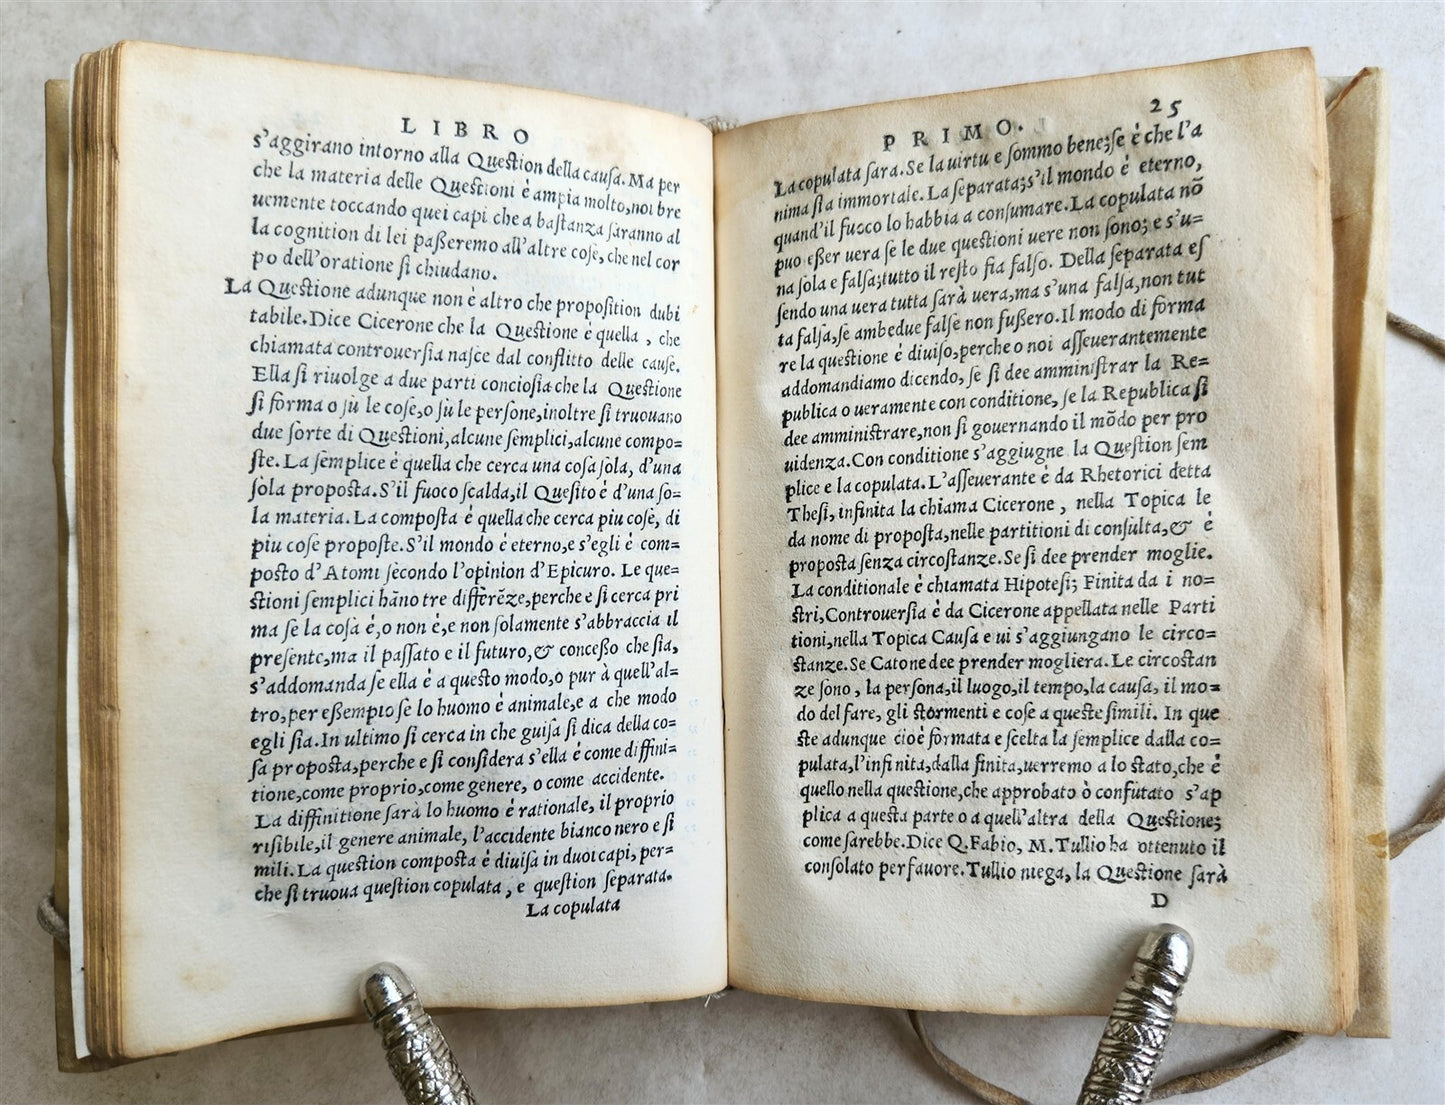 LIBRO
s'aggirano intorno alla Question della causa. Ma per
che la materia delle Questioni è ampia molto, noi bre
uemente toccando quei capi che a bastanza saranno al
la cognition di lei paßeremo all'altre cose, che nel cor
po dell'oratione si chiudano.
La Questione adunque non è altro che proposition dubi
tabile. Dice Cicerone che la Questione è quella, che
chiamata controuersia nasce dal conflitto delle cause.
Ella si riuolge a due parti conciosia che la Questione
si forma o sù le cose, o sù le persone, inoltre si truouano
due sorte di Questioni, alcune semplici, alcune compo=
ste. La semplice è quella che cerca una cosa sola, d'una
sola proposta. S'il fuoco scalda, il Quesito è d'una so=
la materia. La composta è quella che cerca piu cose, di
piu cose proposte. S'il mondo è eterno, e s'egli è com=
posto d'Atomi secondo l'opinion d'Epicuro. Le que=
stioni semplici hāno tre differēze, perche e si cerca pri
ma se la cosa è, o non è, e non solamente s'abbraccia il
presente, ma il passato e il futuro, & conceßo che sia,
s'addomanda se ella è a questo modo, o pur à quell'al=
tro, per eßempio se lo huomo è animale, e a che modo
egli sia. In ultimo si cerca in che guisa si dica della co=
sa proposta, perche e si considera s'ella è come diffini=
tione, come proprio, come genere, o come accidente.
La diffinitione sarà lo huomo è rationale, il proprio
risibile, il genere animale, l'accidente bianco nero e si
mili. La question composta è diuisa in duoi capi, per=
che si truoua question copulata, e question separata.
La copulata
PRIMO. 25
La copulata sara. Se la uirtu e sommo bene; se è che l'a
nima sia immortale. La separata; s'il mondo è eterno,
quand'il fuoco lo habbia a consumare. La copulata nō
puo eßer uera se le due questioni uere non sono; e s'u=
na sola e falsa; tutto il resto fia falso. Della separata es
sendo una uera tutta sarà uera, ma s'una falsa, non tut
ta falsa, se ambedue false non fußero. Il modo di forma
re la questione è diuiso, perche o noi asseuerantemente
addomandiamo dicendo, se si dee amministrar la Re=
publica o ueramente con conditione, se la Republica si
dee amministrare, non si gouernando il mōdo per pro
uidenza. Con conditione s'aggiugne la Question sem
plice e la copulata. L'asseuerante è da Rhetorici detta
Thesi, infinita la chiama Cicerone, nella Topica le
da nome di proposta, nelle partitioni di consulta, & è
proposta senza circostanze. Se si dee prender moglie.
La conditionale è chiamata Hipotesi; Finita da i no=
stri, Controuersia è da Cicerone appellata nelle Parti
tioni, nella Topica Causa e ui s'aggiungano le circo=
stanze. Se Catone dee prender mogliera. Le circostan
ze sono, la persona, il luogo, il tempo, la causa, il mo=
do del fare, gli stormenti e cose a queste simili. In que
ste adunque cioè formata e scelta la semplice dalla co=
pulata, l'infinita, dalla finita, uerremo a lo stato, che è
quello nella questione, che approbato ò confutato s'ap
plica a questa parte o a quell'altra della Questione;
come sarebbe. Dice Q. Fabio, M. Tullio ha ottenuto il
consolato per fauore. Tullio niega, la Questione sarà
D